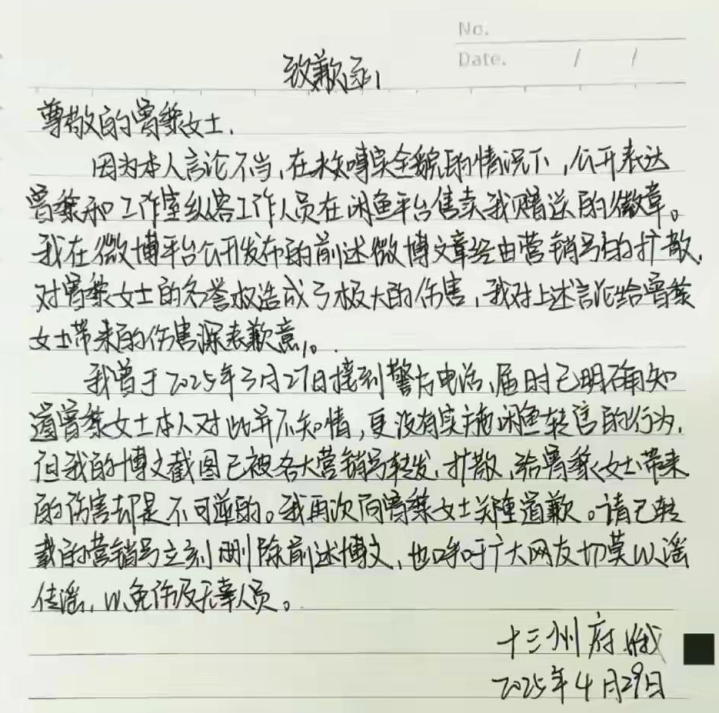 No.
Date. / /
致歉函
尊敬的曾黎女士,
因为本人言论不当,在未知晓全貌的情况下,公开表达
曾黎和工作室纵容工作人员在闲鱼平台售卖我赠送的徽章。
我在微博平台公开发布的前述微博文章经由营销号的扩散,
对曾黎女士的名誉权造成了极大的伤害,我对上述言论给曾黎
女士带来的伤害深表歉意。
我曾于2025年3月27日接到警方电话,届时已明确知
道曾黎女士本人对此并不知情,更没有实施闲鱼转售的行为,
但我的博文截图已被各大营销号转发、扩散,给曾黎女士带来
的伤害却是不可逆的。我再次向曾黎女士郑重道歉。请已转
载的营销号立刻删除前述博文,也呼吁广大网友切莫以谣
传谣,以免伤及无辜人员。
十三州府
2025年4月29日